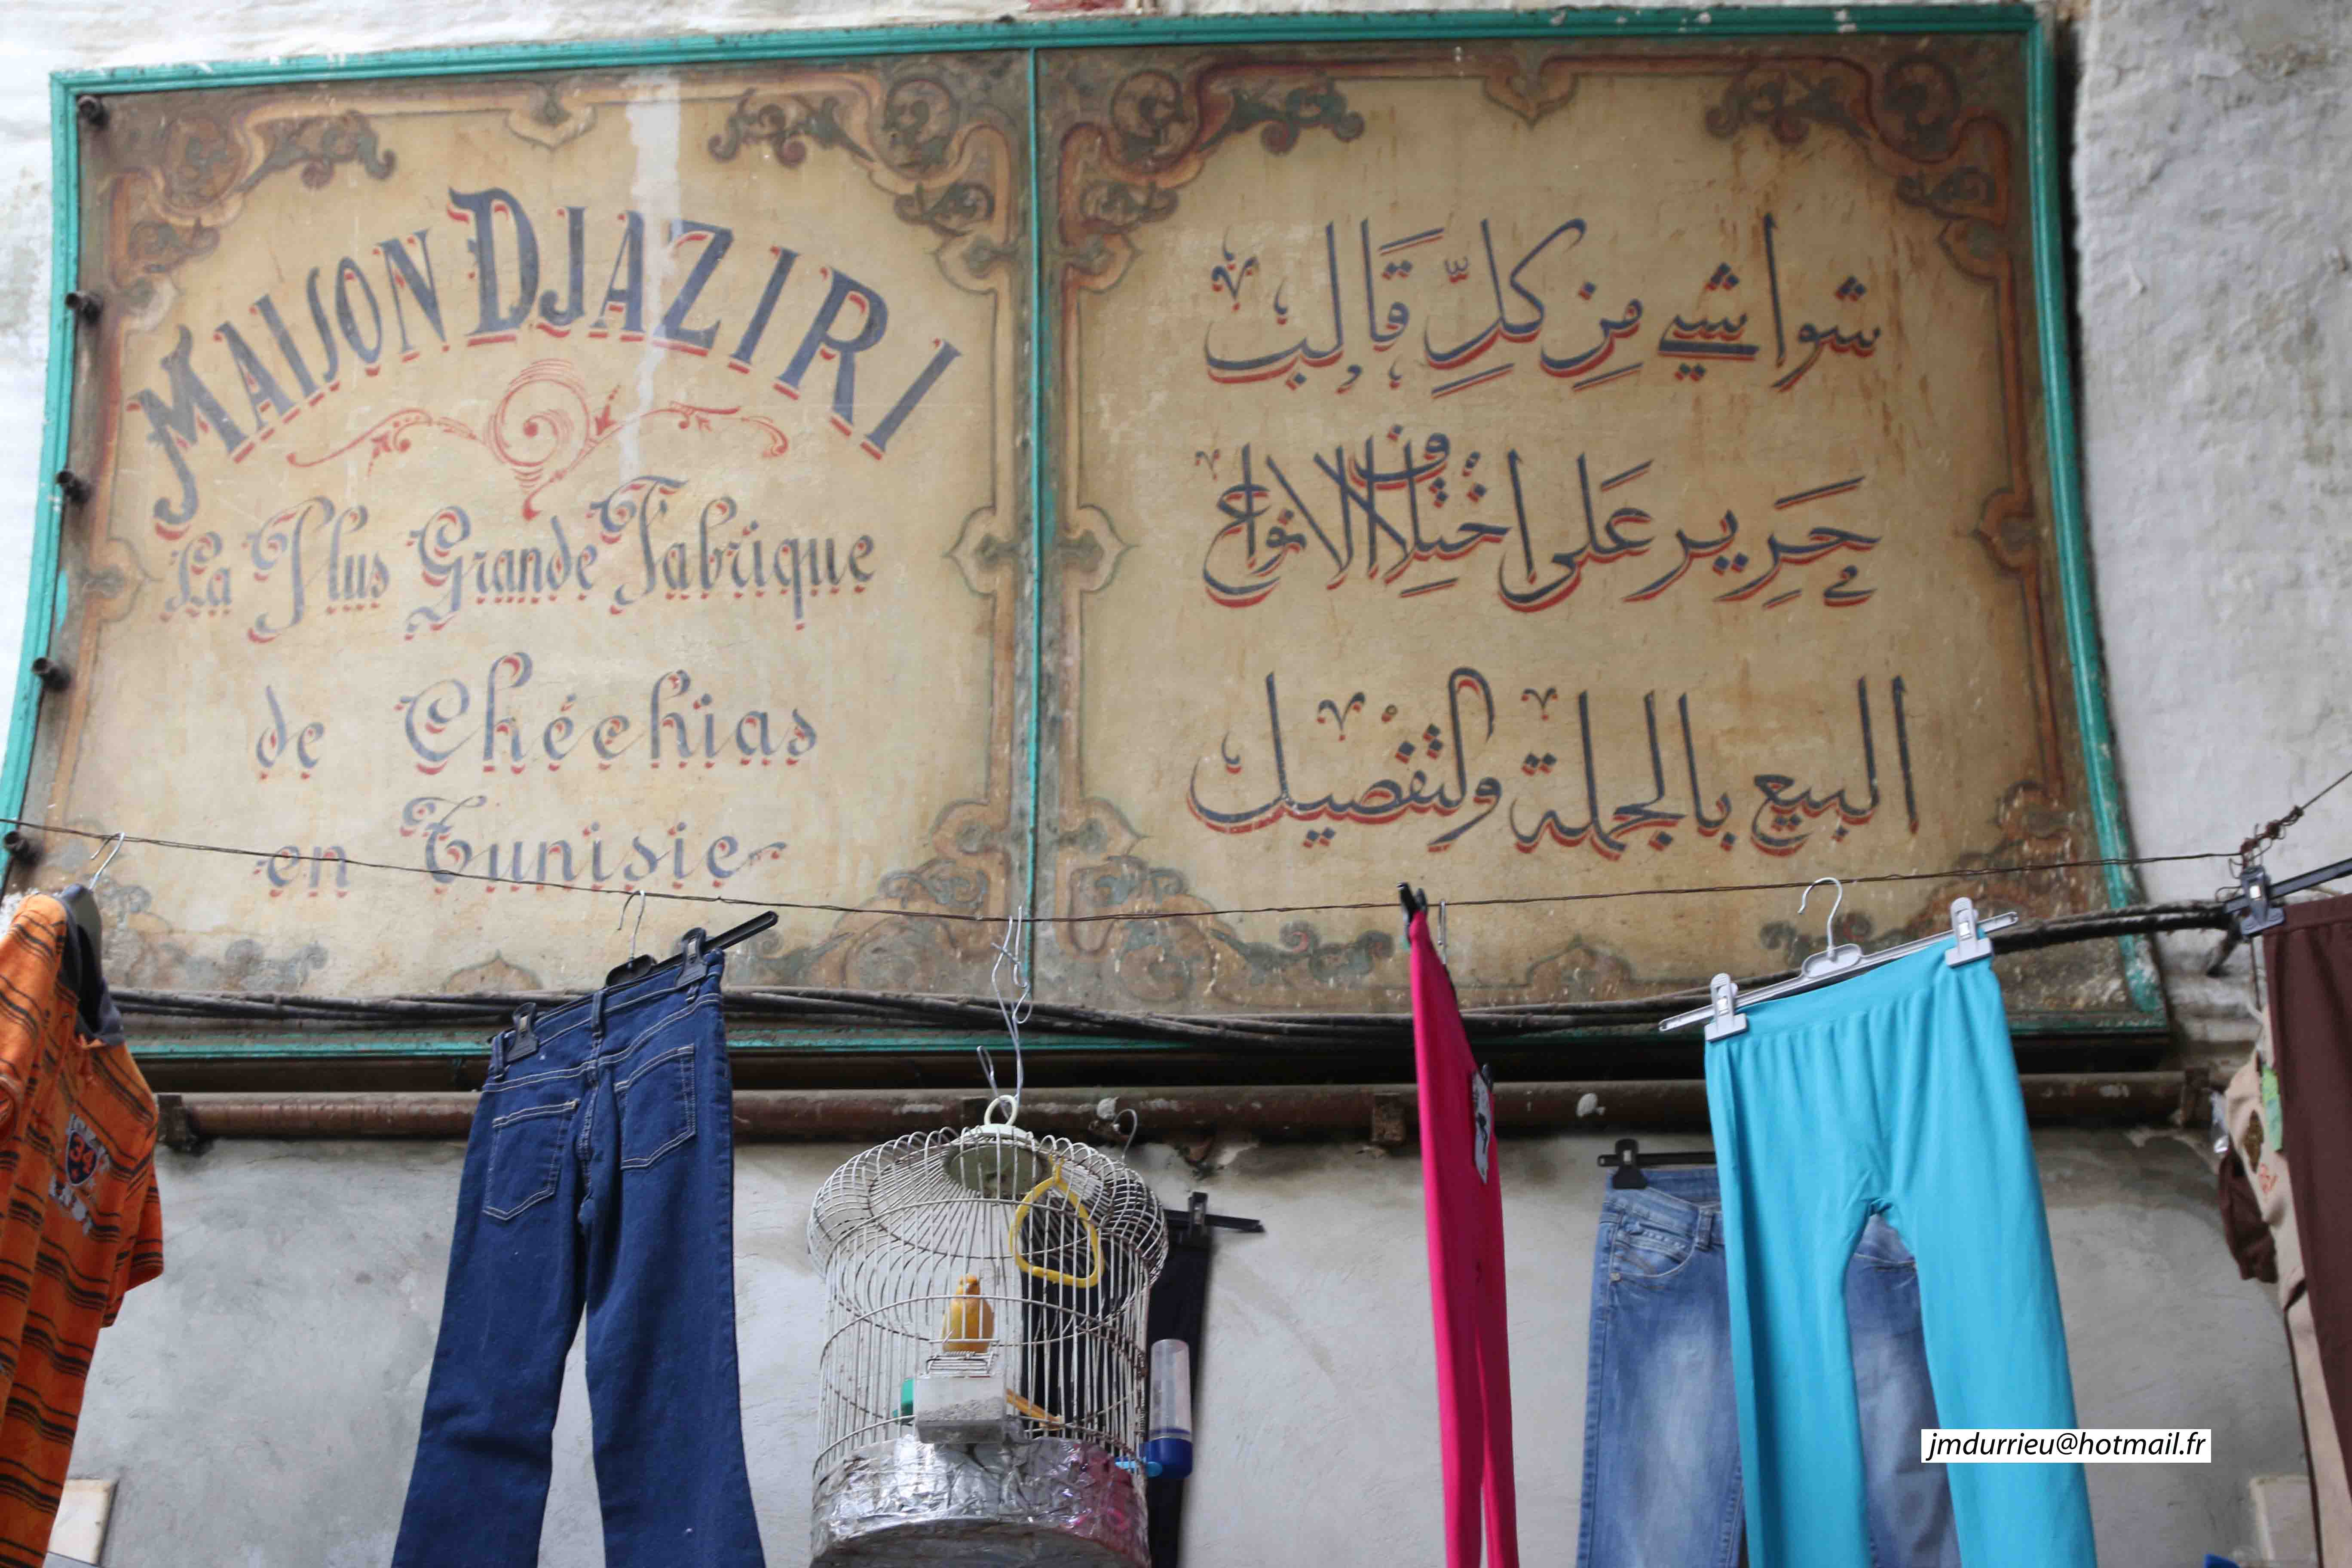 MAISON DJAZIRI
La Plus Grande Fabrique
de Chéchias
en Tunisie
شواشي من كلّ قالب
حرير على اختلاف الانواع
البيع بالجملة والتفصيل
34
jmdurrieu@hotmail.fr